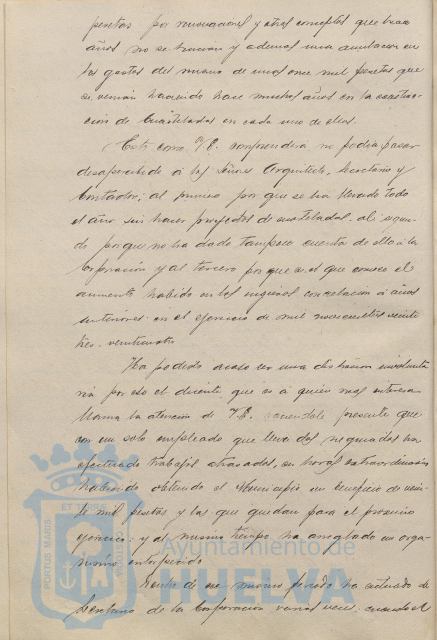 pesetas por renovaciones y otros conceptos que hace
años no se hacian y ademas una aumentacion en
los gastos del mismo de unos once mil pesetas que
se venian haciendo hace muchos años en la construc-
cion de Cuarteladas en cada uno de ellos.
Esto como V.E. comprenderá no podia pasar
desapercibido á los Señores Arquitecto, Secretario y
Contador; al primero por que se ha llevado todo
el año sin hacer proyectos de cuarteladas. al segun-
do porque no ha dado tampoco cuenta de ello á la
Corporación y al tercero por que es el que conoce el
aumento habido en los ingresos con relacion á años
anteriores en el ejercicio de mil novecientos veinte
tres-veinticuatro
Ha podido acaso ser una distracion involunta
ria por eso el dicente que es á quien mas interesa
llama la atención de V.E. haciendole presente que
con un solo empleado que lleva dos negociados ha
efectuado trabajos atrasados, en horas extraordinarias
habiendo obtenido el Municipio un beneficio de vein-
te mil pesetas y las que quedan para el proximo
ejercicio: y al mismo tiempo ha arreglado un orga-
nismo
Dentro de ese mismo periodo ha actuado de
Secretario de la Corporacion varias veces, cuando el
PORTUS MARIS
ET TERRAE
Ayuntamiento de
HUELVA